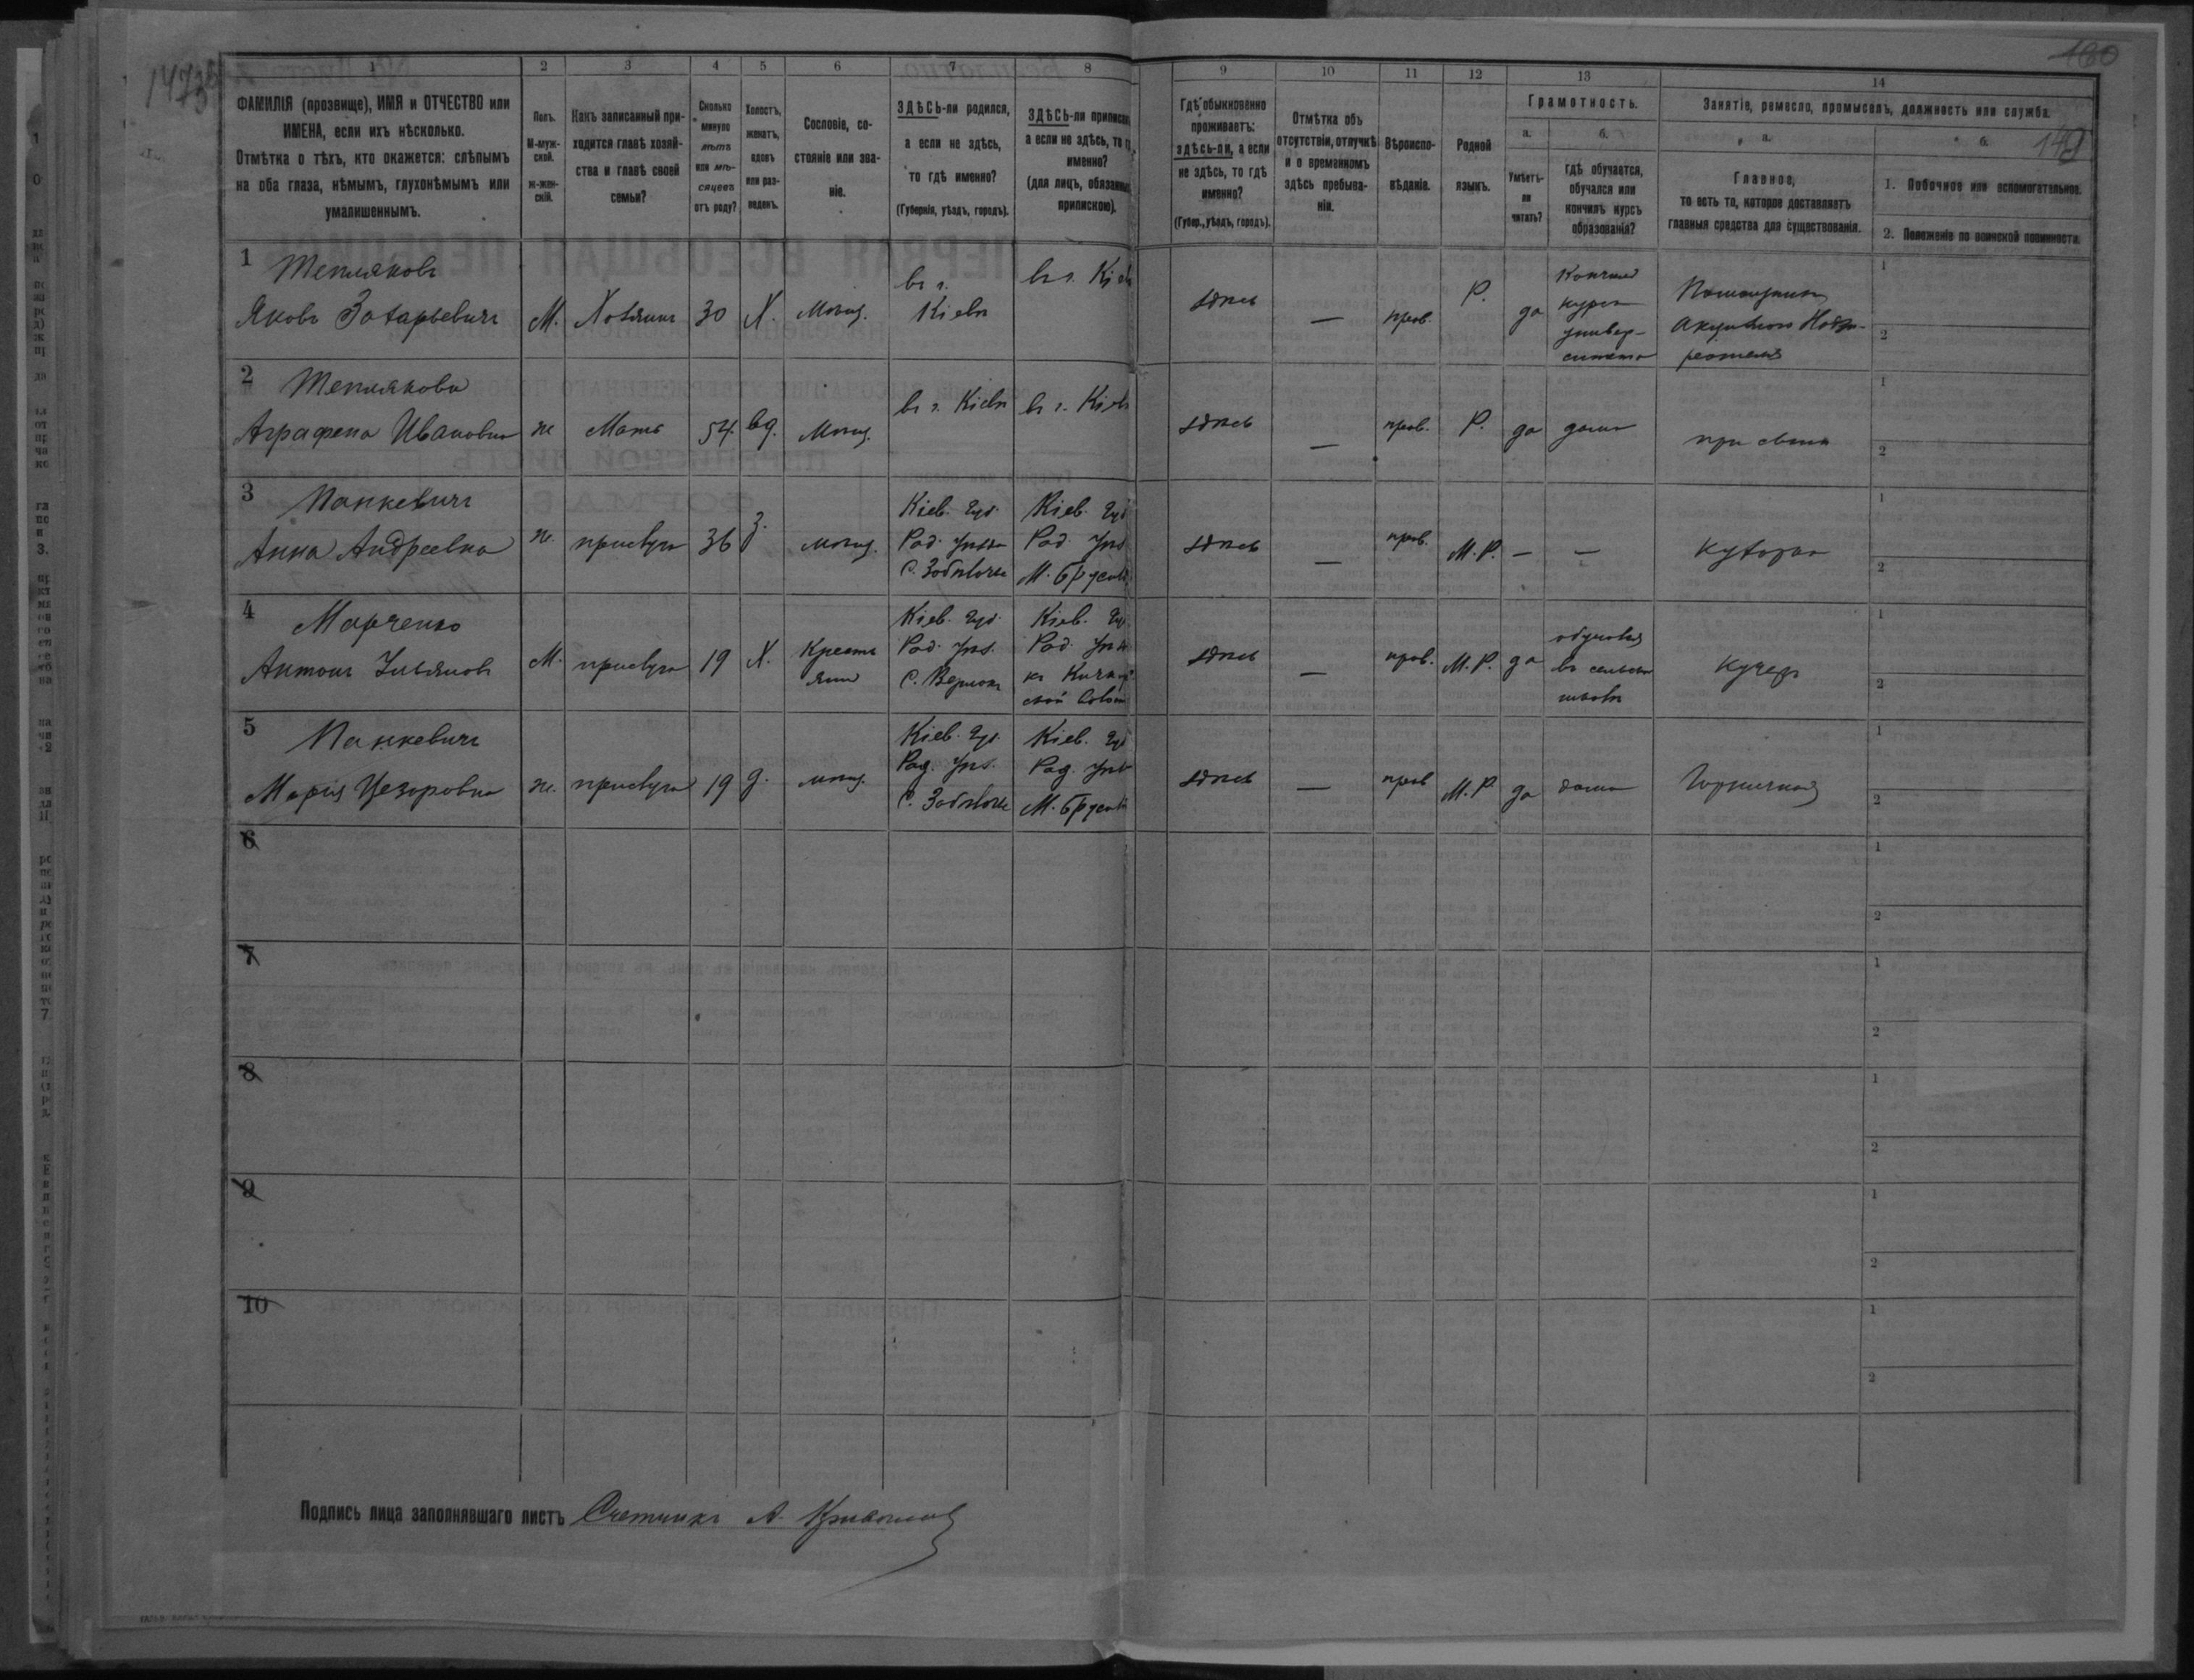 180
149
1 2 3 4 5 6 7 8 9 10 11 12 13 14
ФАМИЛІЯ (прозвище), ИМЯ и ОТЧЕСТВО или
ИМЕНА, если ихъ нѣсколько.
Отмѣтка о тѣхъ, кто окажется: слѣпымъ
на оба глаза, нѣмымъ, глухонѣмымъ или
умалишеннымъ.
Полъ.
М-муж-
ской.
ж-жен-
скій.
Какъ записанный при-
ходится главѣ хозяй-
ства и главѣ своей
семьи?
Сколько
минуло
лѣтъ
или мѣ-
сяцевъ
отъ роду?
Холостъ,
женатъ,
вдовъ
или раз-
веденъ.
Сословіе, со-
стояніе или зва-
ніе.
ЗДѢСЬ-ли родился,
а если не здѣсь,
то гдѣ именно?
(Губернія, уѣздъ, городъ).
ЗДѢСЬ-ли приписан
а если не здѣсь, то
именно?
(для лицъ, обязанны
припискою).
Гдѣ обыкновенно
проживаетъ:
здѣсь-ли, а если
не здѣсь, то гдѣ
именно?
(Губер., уѣздъ, городъ).
Отмѣтка объ
отсутствіи, отлучкѣ
и о временномъ
здѣсь пребыва-
ніи.
Вѣроиспо-
вѣданіе.
Родной
языкъ.
Грамотность.
а. б.
Умѣетъ-
ли
читать?
гдѣ обучается,
обучался или
кончилъ курсъ
образованія?
Занятіе, ремесло, промыселъ, должность или служба.
а. б.
Главное,
то есть то, которое доставляетъ
главныя средства для существованія.
1. Побочное или вспомогательное.
2. Положеніе по воинской повинности.
1 Тепляковъ
Яковъ Захарьевичъ М. Хозяинъ 30 Х. мѣщ.
въ г.
Кіевѣ
въ г. Кіев
здѣсь — прав. Р. да
Кончилъ
курсъ
универ-
ситета
Помощникъ
Акцизнаго Надзи-
рателя
1
2
2 Теплякова
Аграфена Ивановна ж Мать 54. вд. мѣщ. въ г. Кіевѣ въ г. Кіев здѣсь — прав. Р. да дома при сынѣ
1
2
3 Панкевичъ
Анна Андреевна ж. прислуга 36 З. мѣщ.
Кіев. губ.
Рад. уѣзда
С. Забѣлочье
Кіев. губ
Рад. уѣз
М. Брусил
здѣсь — прав. М. Р. — — Кухарка
1
2
4 Марченко
Антонъ Ульяновъ М. прислуга 19 Х.
Кресть
янин
Кіев. губ.
Рад. уѣз.
С.
Кіев. губ
Рад. уѣз
къ
ской волости
здѣсь — прав. М. Р. да
обучался
въ сельской
школѣ
Кучеръ
1
2
5 Панкевичъ
Марія Цезоровна ж. прислуга 19 д. мѣщ.
Кіев. губ.
Рад. уѣз.
С. Забѣлочье
Кіев. губ
Рад. уѣз
М. Брусил
здѣсь — прав М. Р. да дома Горничная
1
2
6
1
2
7
1
2
8
1
2
9
1
2
10
1
2
Подпись лица заполнявшаго листъ Счетчикъ А.